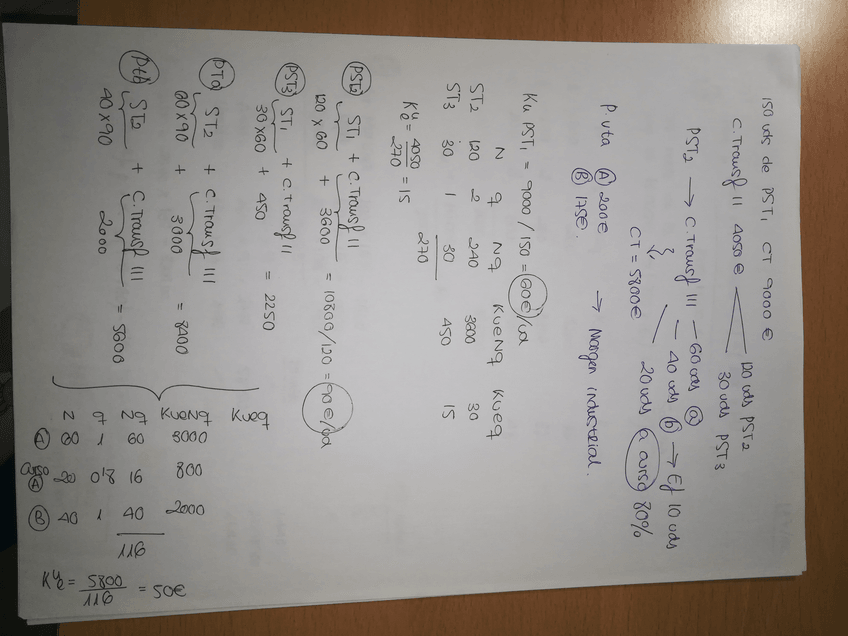 150 uds de PST1 CT 9000 €
C. Transf II 4050 € 120 uds PST2
30 uds PST3
PST2 → C. Transf III — 60 uds (a)
— 40 uds (b) → Ef 10 uds
20 uds a curso 80%
CT = 5800 €
P. vta (A) 200 € → Margen industrial.
(B) 175 €.
Ku PST1 = 9000 / 150 = 60 €/ud
N q Nq KueNq Kueq
ST2 120 2 240 3600 30
ST3 30 1 30 450 15
270
Kue = 4050/270 = 15
(PST2) ST1 + C. Transf II
120 x 60 + 3600 = 10800/120 = 90 €/ud
(PST3) ST1 + C. Transf II
30 x 60 + 450 = 2250
(PTa) ST2 + C. Transf III
60 x 90 + 3000 = 8400
(PTb) ST2 + C. Transf III
40 x 90 + 2000 = 5600
N q Nq KueNq Kueq
(A) 60 1 60 3000
curso (A) 20 0'8 16 800
(B) 40 1 40 2000
116
Kue = 5800/116 = 50 €